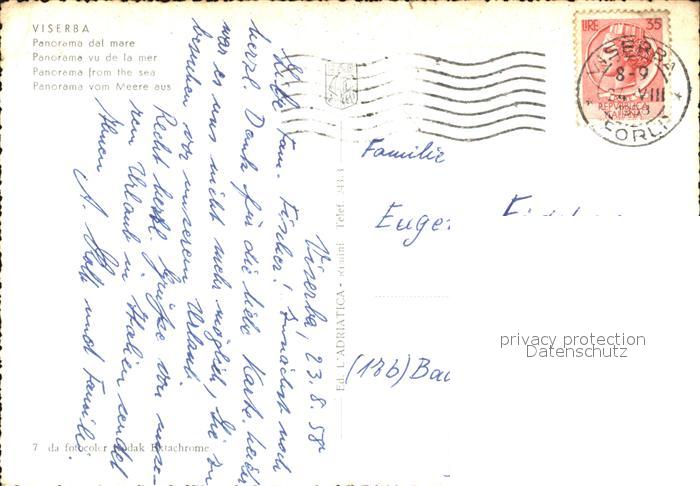 VISERBA
Panorama dal mare
Panorama vu de la mer
Panorama from the sea
Panorama vom Meere aus
LIRE 35
REPUBBLICA
ITALIANA
VISERBA
8-9
VIII
FORLI
Viserba, 23.8.58
Liebe Fam. Fischer! Zunächst noch
herzl. Dank für die liebe Karte. Leider
war es uns nicht mehr möglich, Sie zu
besuchen vor unserem Urlaub.
Recht herzl. Grüße von unse-
rem Urlaub in Italien sendet
Ihnen A. und Familie.
Familie
Euge
(13b) Bad
Ed. L'ADRIATICA - Rimini Telef.
7 da fotocolor Kodak Ektachrome
privacy protection
Datenschutz